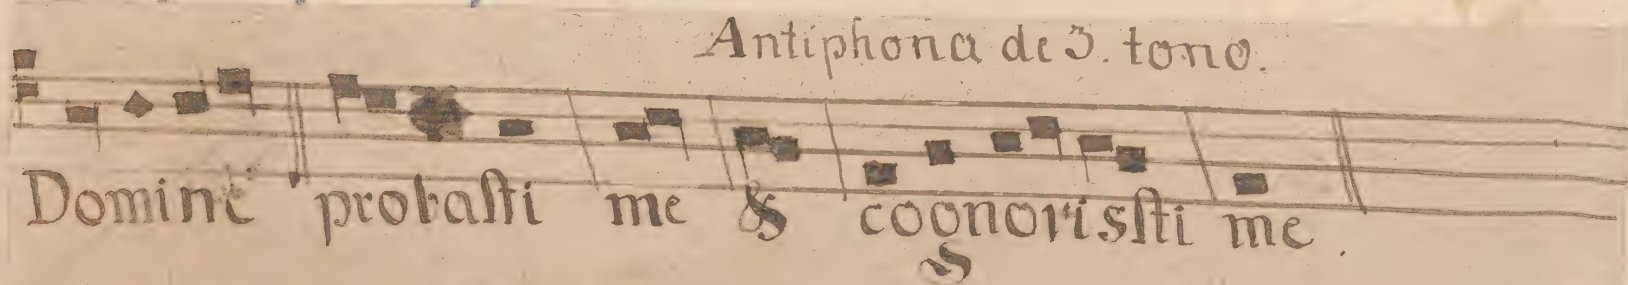 Antiphona de 3. tono.
Domine probasti me & cognovissti me .